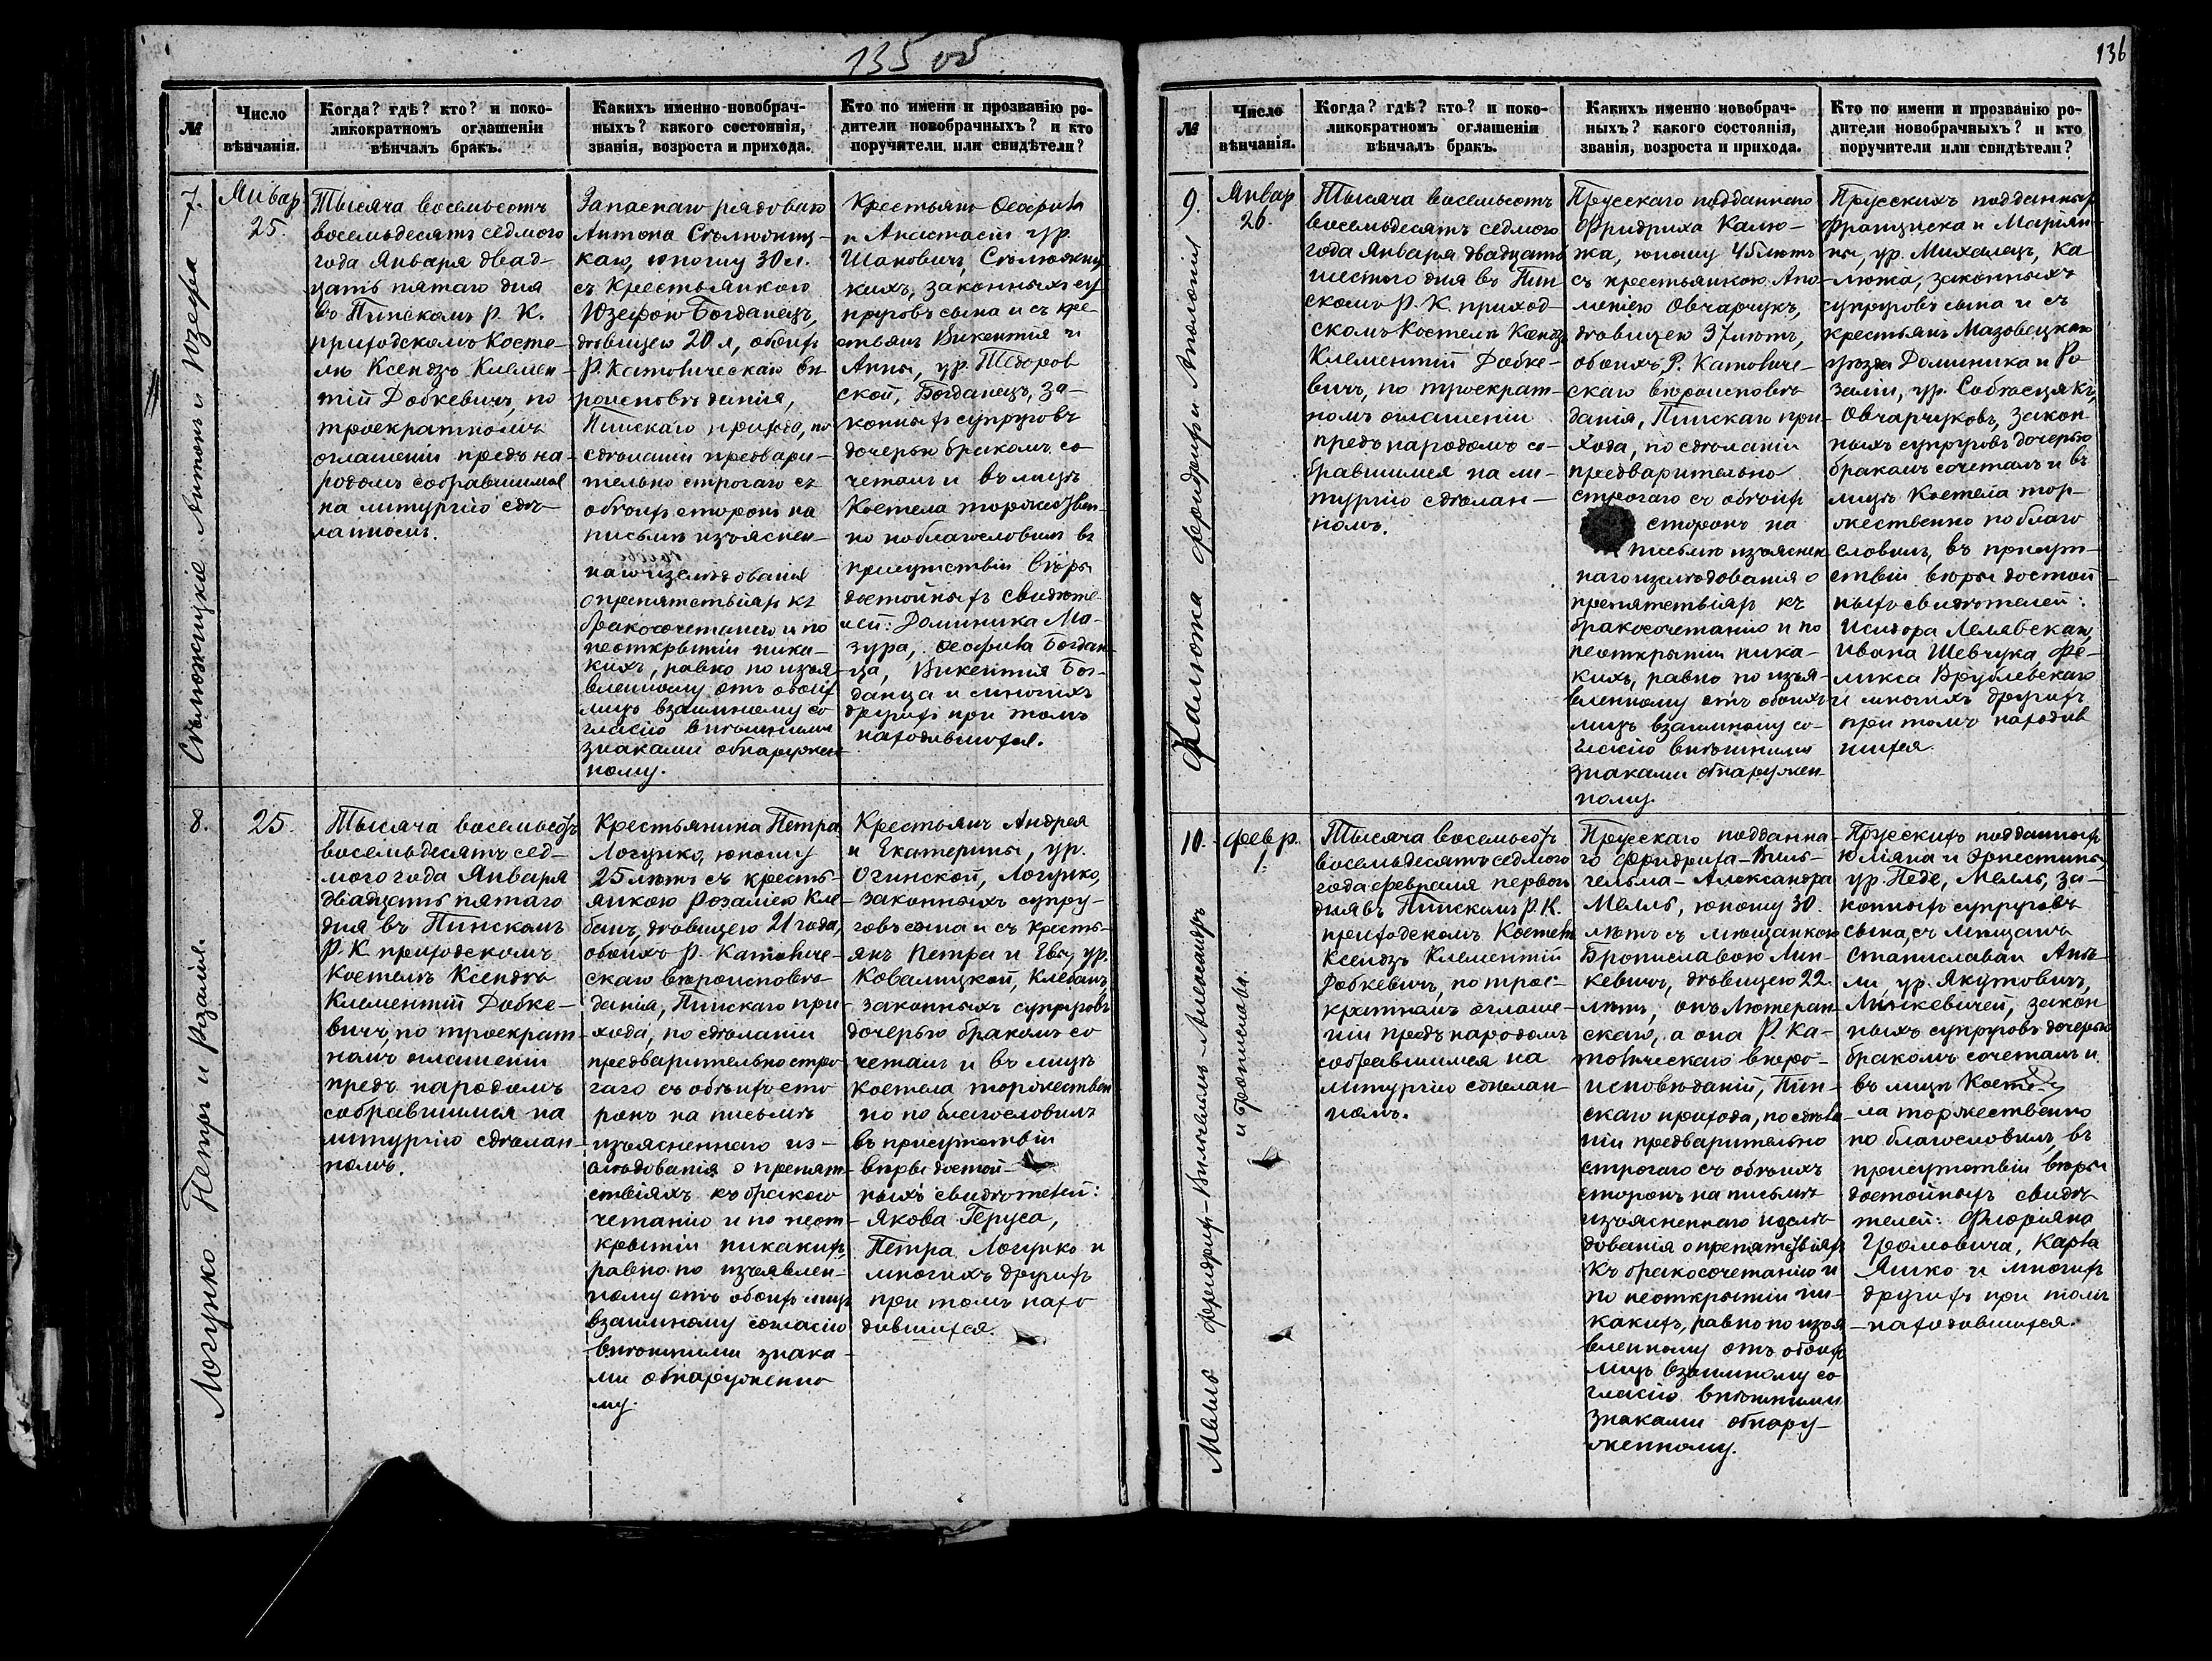 135 об
№
Число
вѣнчанія.
Когда? гдѣ? кто? и поко-
ликократномъ оглашеніи
вѣнчалъ бракъ.
Какихъ именно новобрач-
ныхъ? какого состоянія,
званія, возроста и прихода.
Кто по имени и прозванію ро-
дители новобрачныхъ? и кто
поручители или свидѣтели?
7.
Январ
25.
Тысяча восемьсотъ
восемьдесятъ седмого
года Января двад-
цать пятаго дня
въ Пинскомъ Р. К.
приходскомъ Косте-
лѣ Ксендзъ Клемен-
тій Добкевичъ, по
троекратномъ
оглашеніи предъ на-
родомъ собравшимся
на литургію сдѣ-
ланномъ.
Запаснаго рядоваго
Антона
каго, юношу 30 л.
съ Крестьянкою
Юзефою Богданецъ,
дѣвицею 20 л, обоихъ
Р. Католическаго вѣ-
роисповѣданія,
Пинскаго прихода, по
сдѣланіи предвари-
тельно строгаго съ
обѣихъ сторонъ на
письмѣ изъяснен-
наго изслѣдованія
о препятствіяхъ къ
бракосочетанію и по
неоткрытіи ника-
кихъ, равно по изъя-
вленному отъ обоихъ
лицъ взаимному со
гласію внѣшними
знаками обнаружен-
ному.
Крестьянъ Теофила
и Анастасіи ур.
законныхъ су-
пруговъ сына и съ кре-
стьянъ Викентія и
Анны, ур. Тедоров
ской, Богданецъ, за-
конныхъ супруговъ
дочерью бракомъ со
четалъ и въ лицѣ
Костела торжествен-
но поблагословилъ въ
присутствіи вѣры
достойныхъ свидѣте-
лей: Доминика Ма-
зура, Теофила Богдан-
ца, Викентія Бог-
данца и многихъ
другихъ при томъ
находившихся.
8.
25.
Логушко Петръ и Розалія.
Тысяча восемьсотъ
восемьдесятъ сед-
мого года Января
двадцать пятаго
дня въ Пинскомъ
Р. К приходскомъ
Костелѣ Ксендзъ
Клементій Добке-
вичъ, по троекрат
номъ оглашеніи
предъ народомъ
собравшимся на
литургію сдѣлан-
номъ.
Крестьянина Петра
Логушко, юношу
25 лѣтъ съ кресть-
янкою Розаліею Кле-
банъ, дѣвицею 21 года,
обоихъ Р. Католиче-
скаго вѣроисповѣ-
данія, Пинскаго при-
хода, по сдѣланіи
предварительно стро-
гаго съ обѣихъ сто
ронъ на письмѣ
изъясненнаго из-
слѣдованія о препят-
ствіяхъ къ бракосо
четанію и по неот-
крытіи никакихъ,
равно по изъявлен-
ному отъ обоихъ лицъ
взаимному согласію
внѣшними знака-
ми обнаруженно
му.
Крестьянъ Андрея
и Екатерины, ур.
Огинской, Логушко,
законныхъ супру-
говъ сына и съ кресть-
янъ Петра и Евы, ур.
Ковалицкой, Клебанъ,
законныхъ супруговъ
дочерью бракомъ со
четалъ и въ лицѣ
Костела торжествен
но поблагословилъ
въ присутствіи
вѣры достой-
ныхъ свидѣтелей:
Якова Геруса,
Петра Логушко и
многихъ другихъ
при томъ нахо
дившихся.
136
№
Число
вѣнчанія.
Когда? гдѣ? кто? и поко-
ликократномъ оглашеніи
вѣнчалъ бракъ.
Какихъ именно новобрач-
ныхъ? какого состоянія,
званія, возроста и прихода.
Кто по имени и прозванію ро-
дители новобрачныхъ? и кто
поручители или свидѣтели?
9.
Январ
26.
Калюжа Фридрихъ и Аполонія
Тысяча восемьсотъ
восемьдесятъ седмого
года Января двадцать
шестого дня въ Пин
скомъ Р. К. приход-
скомъ Костелѣ Ксендзъ
Клементій Добке-
вичъ, по троекрат-
номъ оглашеніи
предъ народомъ со-
бравшимся на ли-
тургію сдѣлан-
номъ.
Прусскаго подданнаго
Фридриха Калю-
жа, юношу 45 лѣтъ
съ крестьянкою Апо-
лоніею Овчарчукъ,
дѣвицею 37 лѣтъ,
обоихъ Р. Католиче-
скаго вѣроисповѣ-
данія, Пинскаго при-
хода, по сдѣланіи
предварительно
строгаго съ обѣихъ
сторонъ на
письмѣ изъяснен
наго изслѣдованія о
препятствіяхъ къ
бракосочетанію и по
неоткрытіи ника-
кихъ, равно по изъя-
вленному отъ обоихъ
лицъ взаимному со-
гласію внѣшними
знаками обнаружен
ному.
Прусскихъ подданныхъ
Францишка и Маріан-
ны, ур. Михалецъ, Ка-
люжа, законныхъ
супруговъ сына и съ
крестьянъ Мазовецкаго
уѣзда Доминика и Ро-
заліи, ур.
Овчарчуковъ, закон
ныхъ супруговъ дочерью
бракомъ сочеталъ и въ
лицѣ Костела тор-
жественно поблаго
словилъ, въ присут-
ствіи вѣры достой
ныхъ свидѣтелей:
Исидора
Ивана Шевчука, Фе-
ликса Врублевскаго
и многихъ другихъ
при томъ находив
шихся.
10.
Февр.
1.
Мелль Фридрихъ-Вильгельмъ-Александръ
и Бронислава.
Тысяча восемьсотъ
восемьдесятъ седмого
года Февраля перваго
дня въ Пинскомъ Р. К.
приходскомъ Костелѣ
Ксендзъ Клементій
Добкевичъ, по трое-
кратномъ оглаше-
ніи предъ народомъ
собравшимся на
литургію сдѣлан-
номъ.
Прусскаго подданна-
го Фридриха-Виль-
гельма-Александра
Мелль, юношу 30
лѣтъ съ мѣщанкою
Брониславою Мин-
кевичъ, дѣвицею 22
лѣтъ, онъ Лютеран-
скаго, а она Р. Ка-
толическаго вѣро-
исповѣданій, Пин-
скаго прихода, по сдѣла
ніи предварительно
строгаго съ обѣихъ
сторонъ на письмѣ
изъясненнаго изслѣ-
дованія о препятствіяхъ
къ бракосочетанію и
по неоткрытіи ни-
какихъ, равно по изъя
вленному отъ обоихъ
лицъ взаимному со
гласію внѣшними
знаками обнару-
женному.
Прусскихъ подданныхъ
Юліана и Эрнестины,
ур. Педе, Мелль, за-
конныхъ супруговъ
сына, съ мѣщанъ
Станислава и Анѣ-
ли, ур. Якутовичъ,
Минкевичей, закон
ныхъ супруговъ дочерью
бракомъ сочеталъ и
въ лицѣ Косте-
ла торжественно
поблагословилъ, въ
присутствіи вѣры
достойныхъ свидѣ-
телей: Флоріана
Громовича, Карла
Яшко и многихъ
другихъ при томъ
находившихся.